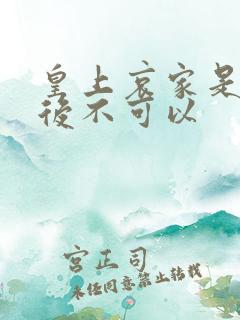 皇上哀家是
後不可以
宮正司
未经同意禁止转载